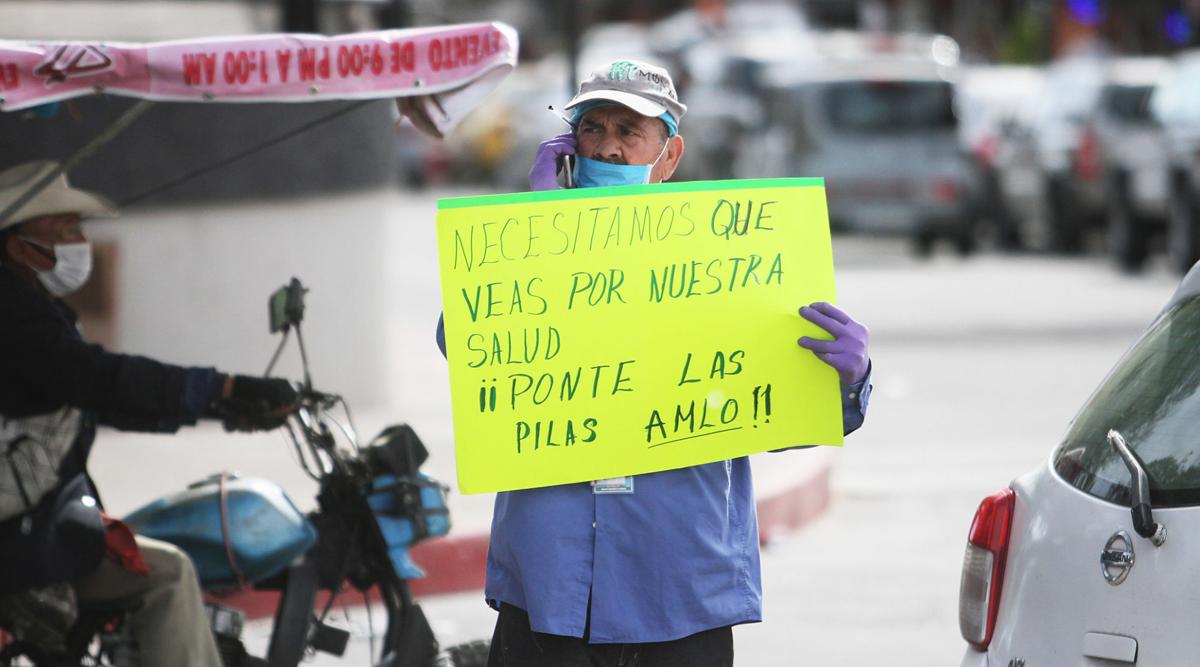 EVENTO DE 9:00 PM A 1:00 AM
NECESITAMOS QUE
VEAS POR NUESTRA
SALUD
¡¡PONTE LAS
PILAS AMLO!!
NISSAN